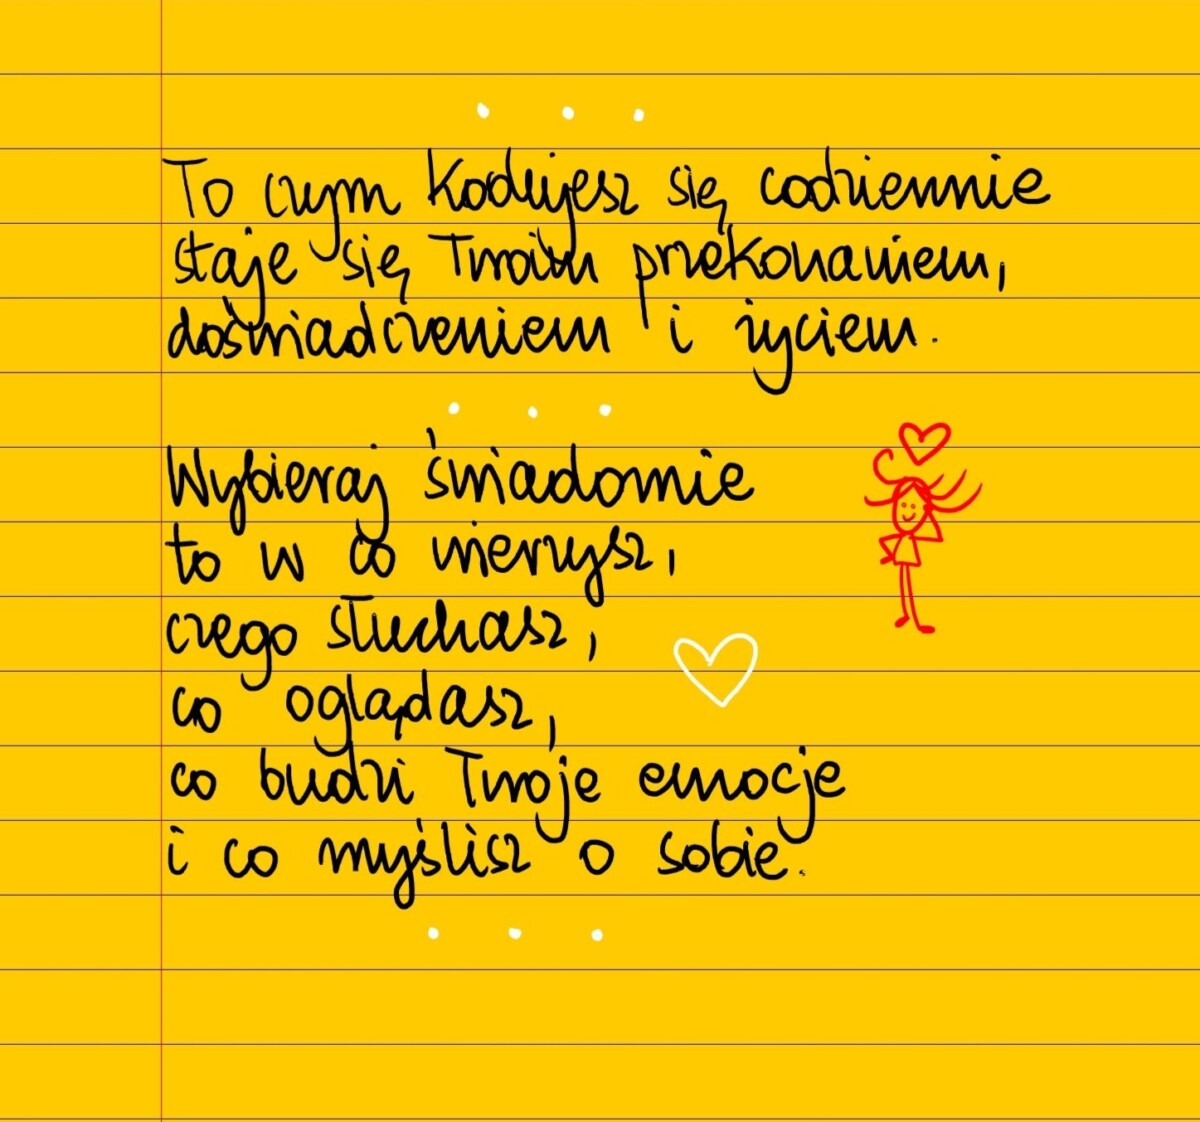 To czym kodujesz się codziennie
staje się Twoim przekonaniem,
doświadczeniem i życiem.
Wybieraj świadomie
to w co wierzysz,
czego słuchasz,
co oglądasz,
co budzi Twoje emocje
i co myślisz o sobie.